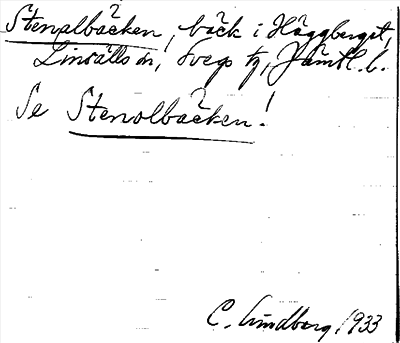 Stenalbäcken, bäck i Häggberget,
Linsälls sn, Svegs tg, Jämtl. l.
Se Stenolbäcken!
C. Lindberg 1933